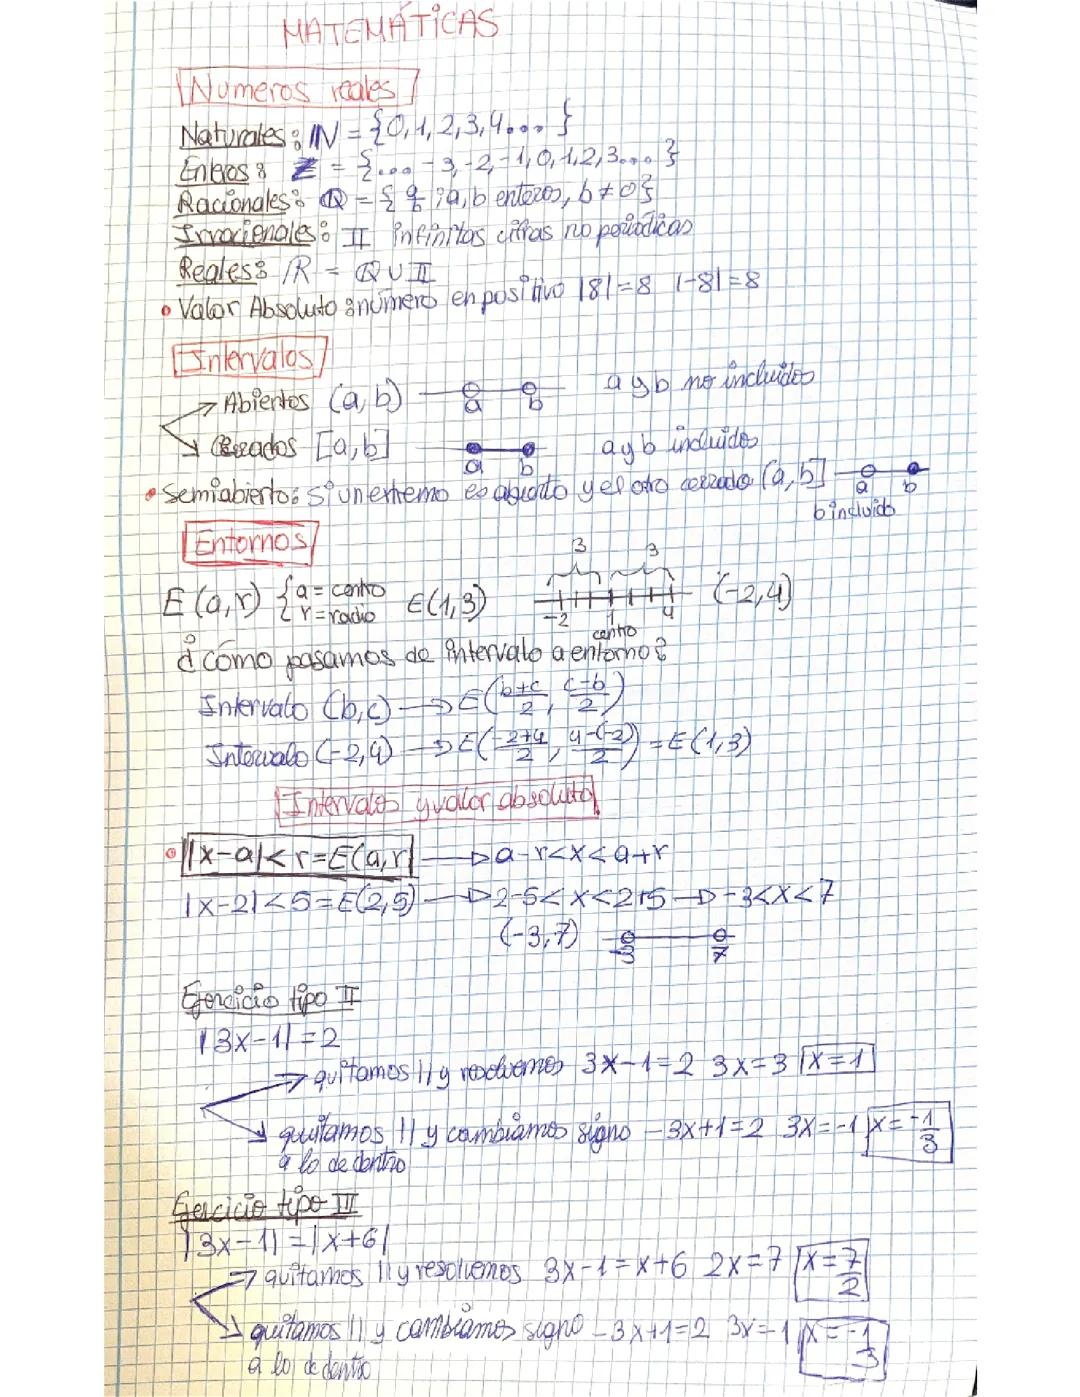 MATEMÁTICAS
Números reales
Naturales: ℕ = {0, 1, 2, 3, 4... }
Enteros: ℤ = {... -3, -2, -1, 0, 1, 2, 3... }
Racionales: ℚ = { a/b ; a, b enteros, b ≠ 0}
Irracionales: II infinitas cifras no periódicas
Reales: ℝ = ℚ ∪ II
• Valor Absoluto: número en positivo |8| = 8 |-8| = 8
Intervalos
→ Abiertos (a, b) a b a y b no incluidos
→ Cerrados [a, b] a b a y b incluidos
• Semiabierto: si un extremo es abierto y el otro cerrado (a, b] a b
b incluido
Entornos
3 3
E(a, r) { a = centro r = radio E(1, 3) -2 1 4 (-2, 4)
centro
¿Cómo pasamos de intervalo a entorno?
Intervalo (b, c) → E(b+c/2, c-b/2)
Intervalo (-2, 4) → E(-2+4/2, 4-(-2)/2) = E(1, 3)
Intervalos y valor absoluto
• |x-a| < r = E(a, r → a-r < x < a+r
|x-2| < 5 = E(2, 5) → 2-5 < x < 2+5 → -3 < x < 7
(-3, 7) -3 7
Ejercicio tipo II
|3x-1| = 2
→ quitamos || y resolvemos 3x-1=2 3x=3 x=1
→ quitamos || y cambiamos signo -3x+1=2 3x=-1 x=-1/3
a lo de dentro
Ejercicio tipo III
|3x-1| = |x+6|
→ quitamos || y resolvemos 3x-1=x+6 2x=7 x=7/2
→ quitamos || y cambiamos signo -3x+1=2 3x=-1 x=-1/3
a lo de dentro